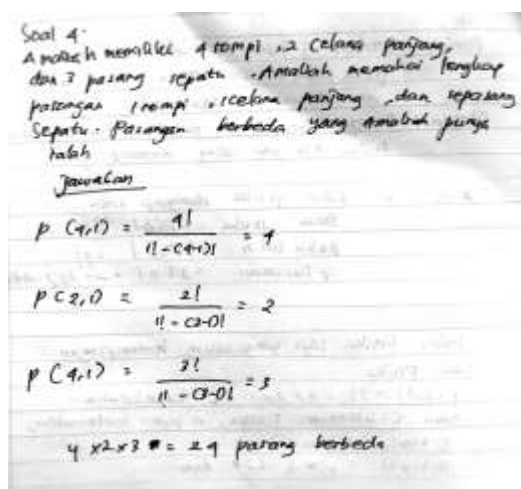 Soal 4.
Amaliah memiliki 4 rompi, 2 celana panjang,
dan 3 pasang sepatu. Amaliah memakai lengkap
pasangan 1 rompi, 1 celana panjang, dan sepasang
Sepatu. Pasangan berbeda yang Amaliah punya
ialah
Jawaban
P (4,1) = 4! / 1! - (4-1)! = 4
P (2,1) = 2! / 1! - (2-1)! = 2
P (4,1) = 3! / 1! - (3-1)! = 3
4 x 2 x 3 = 24 pasang berbeda